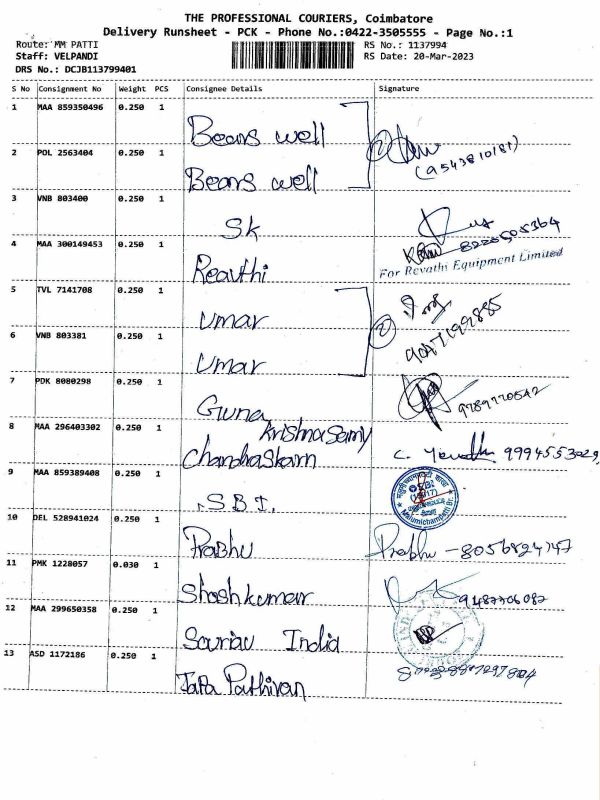 THE PROFESSIONAL COURIERS, Coimbatore
Delivery Runsheet - PCK - Phone No.:0422-3505555 - Page No.:1
Route: MM PATTI RS No.: 1137994
Staff: VELPANDI RS Date: 20-Mar-2023
DRS No.: DCJB113799401
S No Consignment No Weight PCS Consignee Details Signature
1 MAA 859350496 0.250 1 Beans well
2 POL 2563404 0.250 1 Beans well (9543810181)
3 VNB 803400 0.250 1 Sk
4 MAA 300149453 0.250 1 Reavthi
For Revathi Equipment Limited
5 TVL 7141708 0.250 1 Umar
6 VNB 803381 0.250 1 Umar
7 PDK 8080298 0.250 1 Guna 9789770542
8 MAA 296403302 0.250 1 Krishnasamy
Chandraskarn C. 9994553029
9 MAA 859389408 0.250 1 S.B.I. SBI Malumichampatti Br.
10 DEL 528941024 0.250 1 Prabhu Prabhu - 8056824747
11 PMK 1228057 0.030 1 Shashkumar 9487706082
12 MAA 299650358 0.250 1 Souriau India
13 ASD 1172186 0.250 1